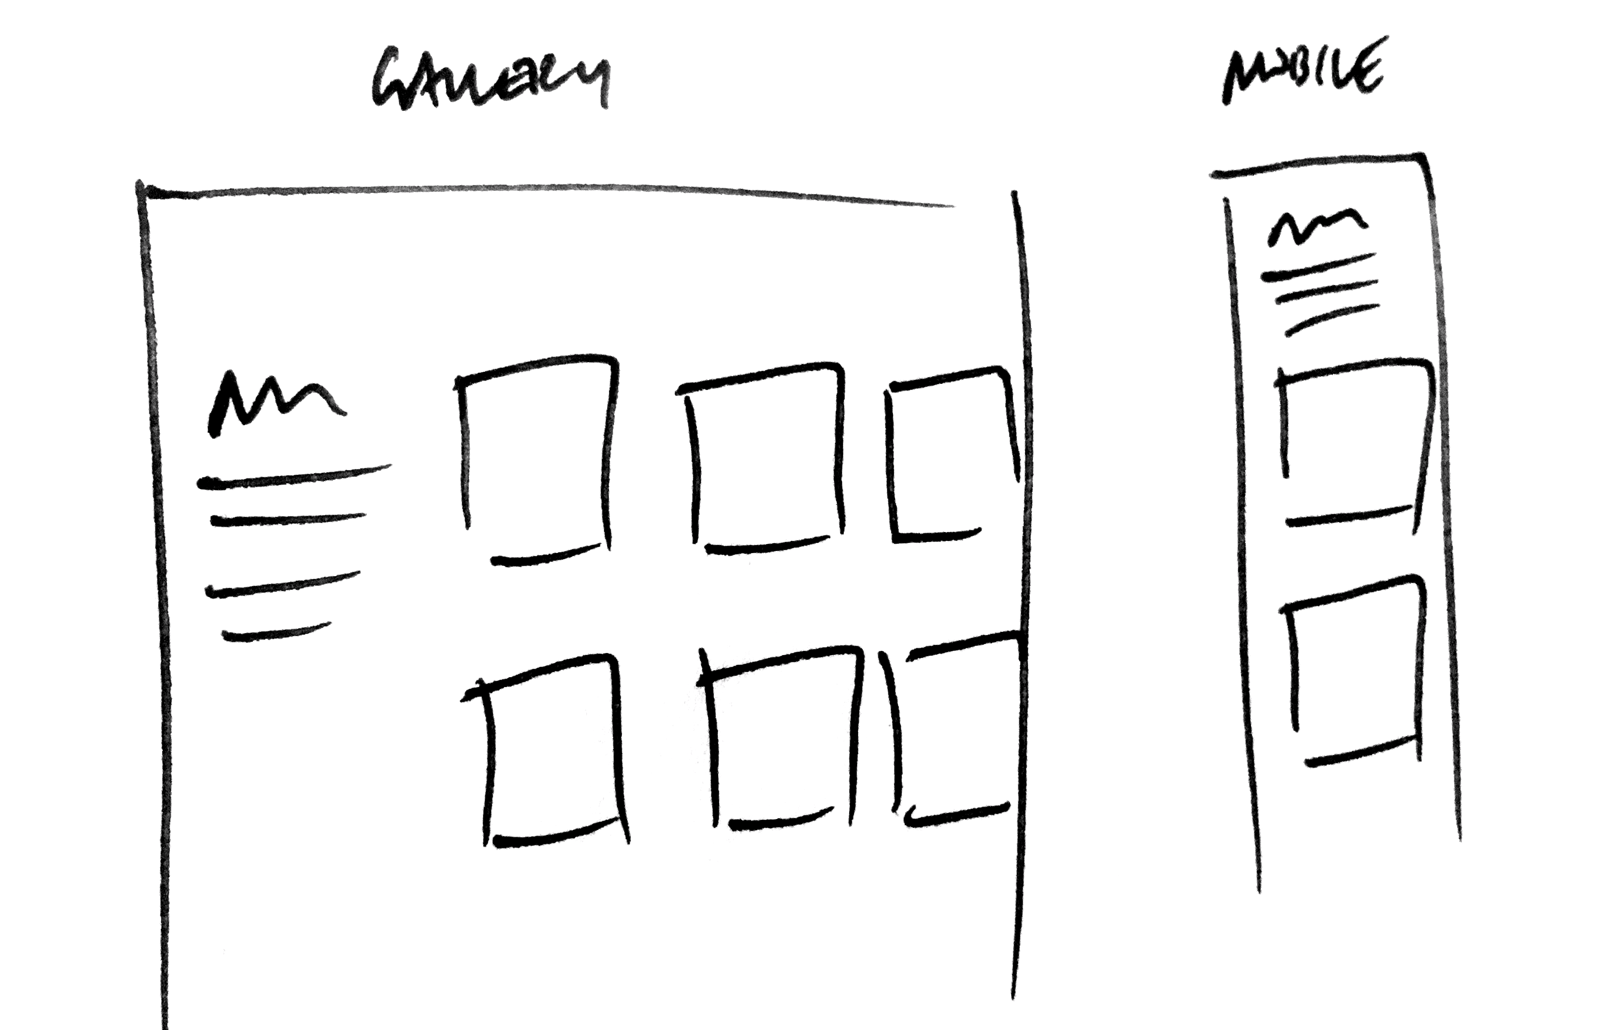 GALLERY
MOBILE